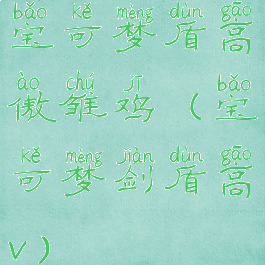 bǎo kě mèng dùn gāo
宝可梦盾高
ào chú jī bǎo
傲雏鸡(宝
kě mèng jiàn dùn gāo
可梦剑盾高
v)